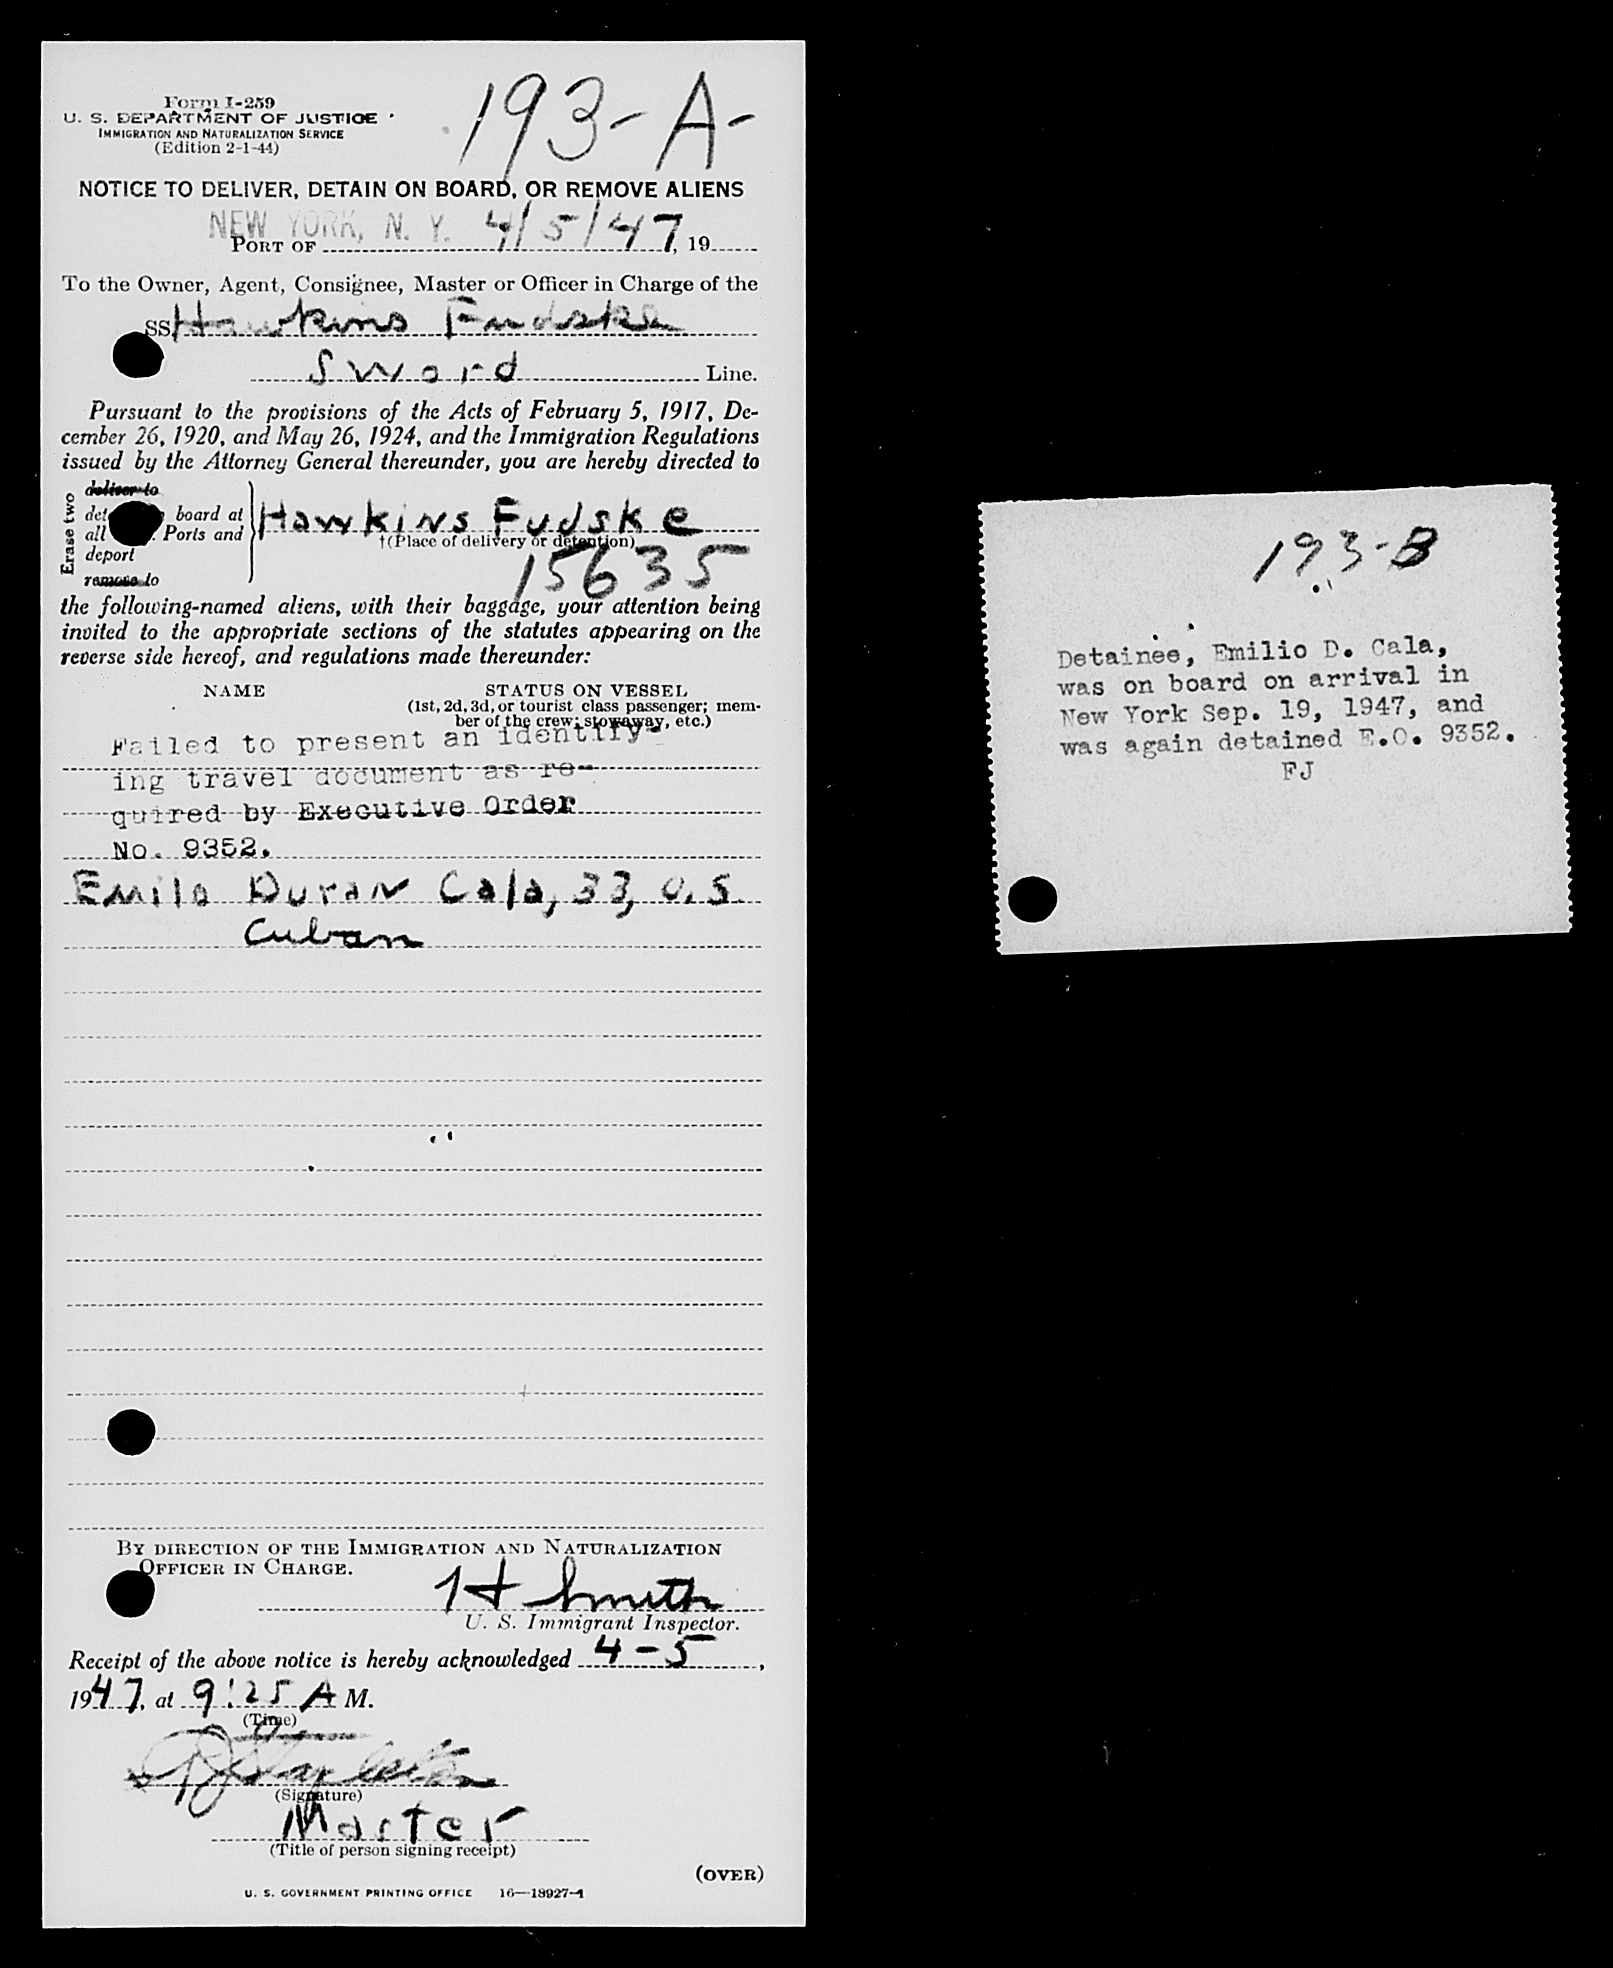 Form I-259
U. S. DEPARTMENT OF JUSTICE
IMMIGRATION AND NATURALIZATION SERVICE
(Edition 2-1-44)
193-A-
NOTICE TO DELIVER, DETAIN ON BOARD, OR REMOVE ALIENS
NEW YORK, N. Y. 4/5/47
PORT OF , 19
To the Owner, Agent, Consignee, Master or Officer in Charge of the
SS Hawkins Fudske
Sword Line.
Pursuant to the provisions of the Acts of February 5, 1917, De-
cember 26, 1920, and May 26, 1924, and the Immigration Regulations
issued by the Attorney General thereunder, you are hereby directed to
Erase two
deliver to
board at
all Ports and
deport
remove to
Hawkins Fudske
†(Place of delivery or detention)
15635
the following-named aliens, with their baggage, your attention being
invited to the appropriate sections of the statutes appearing on the
reverse side hereof, and regulations made thereunder:
NAME STATUS ON VESSEL
(1st, 2d, 3d, or tourist class passenger; mem-
ber of the crew; stowaway, etc.)
Failed to present an identify-
ing travel document as re-
quired by Executive Order
No. 9352.
Emilo Duran Cala, 33, O.S.
Cuban
BY DIRECTION OF THE IMMIGRATION AND NATURALIZATION
OFFICER IN CHARGE.
H Smith
U. S. Immigrant Inspector.
Receipt of the above notice is hereby acknowledged 4-5,
1947, at 9:25 A M.
(Time)
(Signature)
Master
(Title of person signing receipt)
(OVER)
U. S. GOVERNMENT PRINTING OFFICE 16—18927-1
193-B
Detainee, Emilio D. Cala,
was on board on arrival in
New York Sep. 19, 1947, and
was again detained E.O. 9352.
FJ